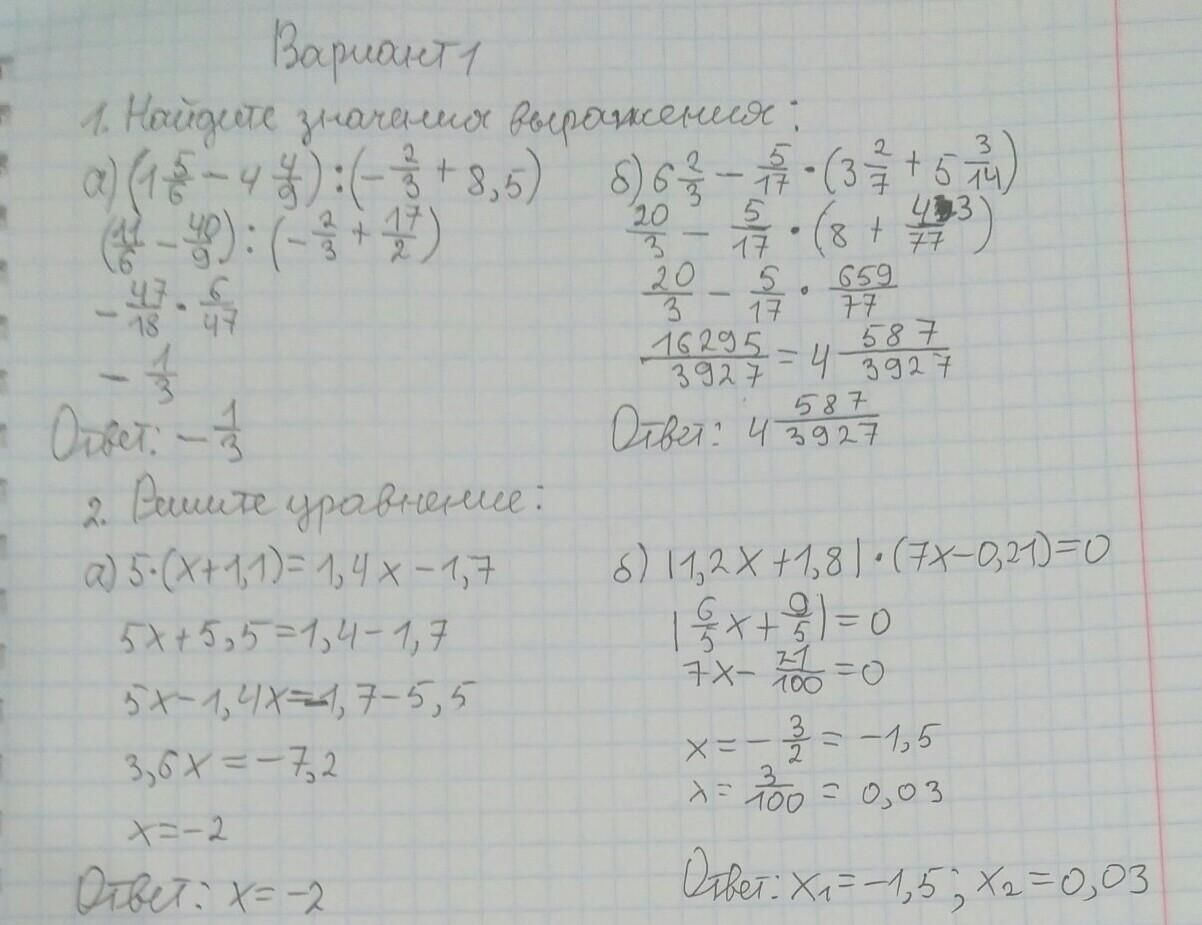 Вариант 1
1. Найдите значения выражения:
а) (1 5/6 − 4 4/9) : (− 2/3 + 8,5)
(11/6 − 40/9) : (− 2/3 + 17/2)
− 47/18 · 6/47
− 1/3
Ответ: − 1/3
б) 6 2/3 − 5/17 · (3 2/7 + 5 3/14)
20/3 − 5/17 · (8 + 43/77)
20/3 − 5/17 · 659/77
16295/3927 = 4 587/3927
Ответ: 4 587/3927
2. Решите уравнение:
а) 5·(x+1,1)=1,4x−1,7
5x+5,5=1,4−1,7
5x−1,4x=−1,7−5,5
3,6x=−7,2
x=−2
Ответ: x=−2
б) |1,2x+1,8|·(7x−0,21)=0
|6/5 x + 9/5| = 0
7x − 21/100 = 0
x = − 3/2 = −1,5
x = 3/100 = 0,03
Ответ: x₁=−1,5; x₂=0,03